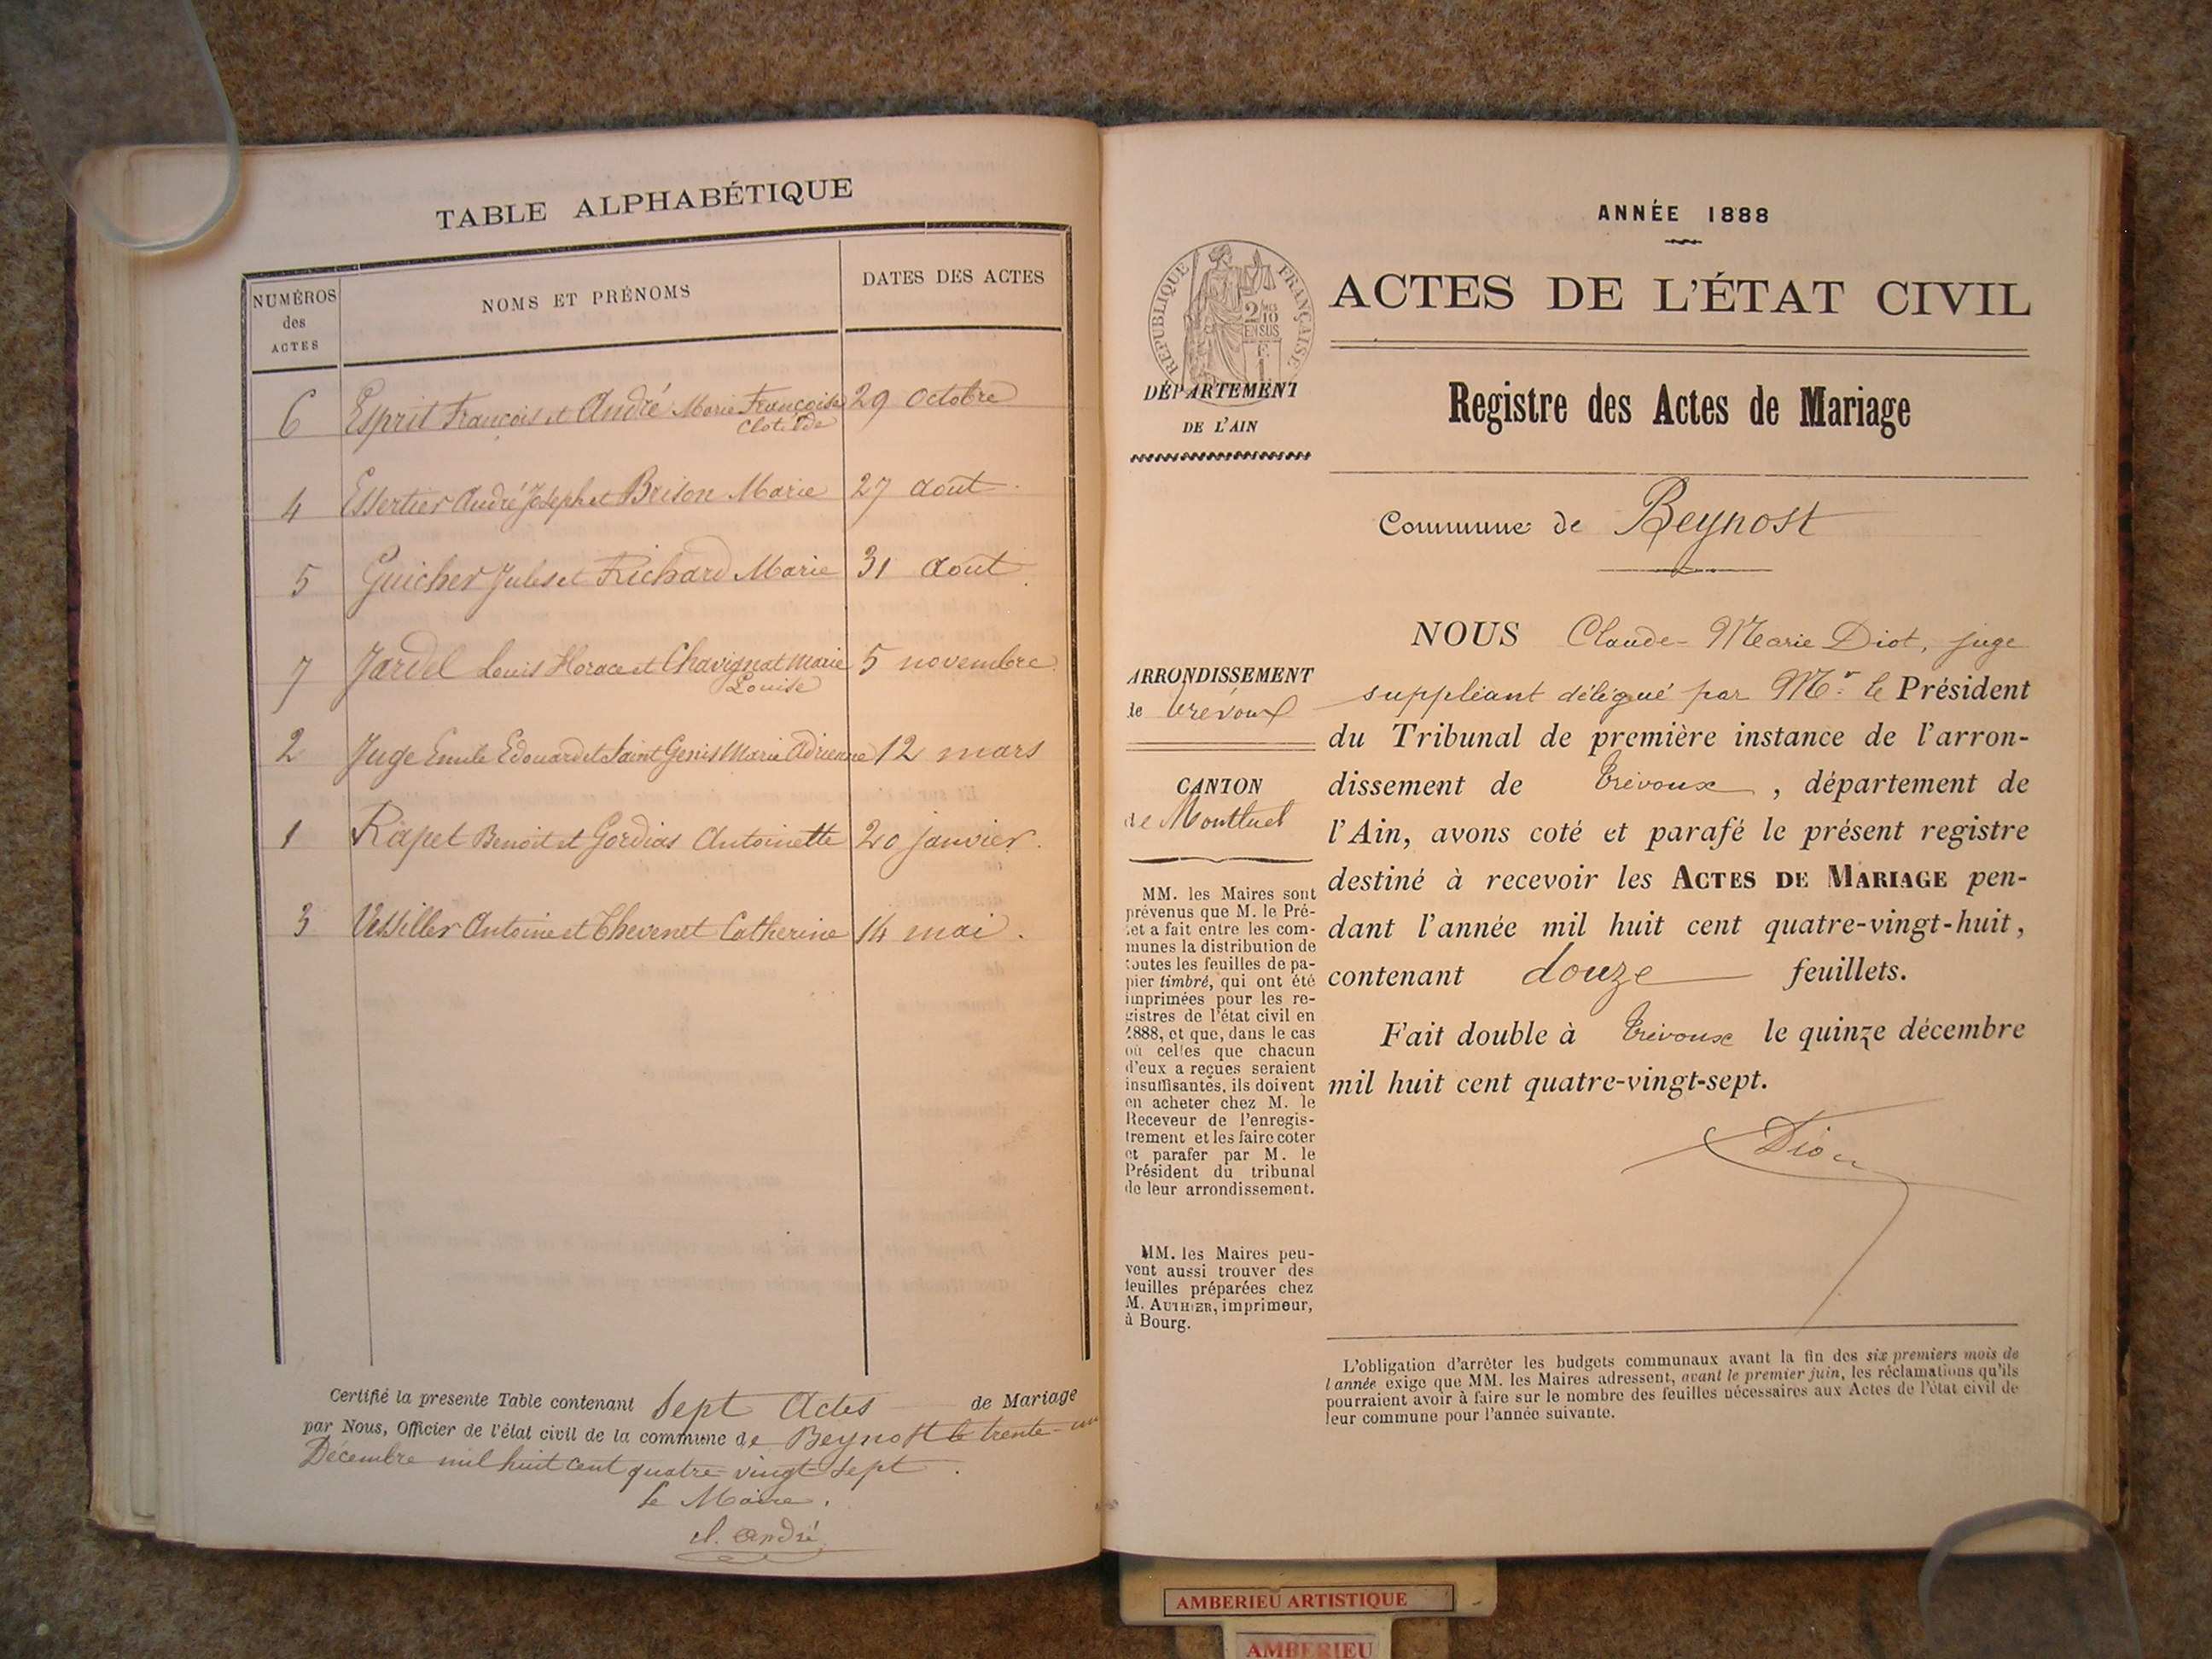 TABLE ALPHABÉTIQUE
NUMÉROS
des
ACTES
NOMS ET PRÉNOMS
DATES DES ACTES
6 Esprit François et André Marie Françoise 29 octobre
Clotilde
4 Essertier André Joseph et Brison Marie 27 août
5 Guicher Jules et Richard Marie 31 août
7 Jardel Louis Horace et Chavignat Marie 5 novembre
Louise
2 Juge Emile Edouard et Saint Genis Marie Adrienne 12 mars
1 Rapet Benoit et Gordias Antoinette 20 janvier.
3 Vessiller Antoine et Thevenet Catherine 14 mai.
Certifié la presente Table contenant Sept Actes de Mariage
par Nous, Officier de l'état civil de la commune de Beynost le trente-un
Décembre mil huit cent quatre-vingt-sept.
Le Maire,
cl. andré
ANNÉE 1888
RÉPUBLIQUE FRANÇAISE
2/10
EN SUS
ACTES DE L'ÉTAT CIVIL
Registre des Actes de Mariage
DÉPARTEMENT
DE L'AIN
Commune de Beynost
ARRONDISSEMENT
de Trévoux
CANTON
de Montluel
NOUS Claude-Marie Diot, juge
suppléant délégué par Mr. le Président
du Tribunal de première instance de l'arron-
dissement de Trévoux, département de
l'Ain, avons coté et parafé le présent registre
destiné à recevoir les ACTES DE MARIAGE pen-
dant l'année mil huit cent quatre-vingt-huit,
contenant douze feuillets.
Fait double à Trévoux le quinze décembre
mil huit cent quatre-vingt-sept.
Diot
MM. les Maires sont
prévenus que M. le Pré-
fet a fait entre les com-
munes la distribution de
toutes les feuilles de pa-
pier timbré, qui ont été
imprimées pour les re-
gistres de l'état civil en
1888, et que, dans le cas
où celles que chacun
d'eux a reçues seraient
insuffisantes, ils doivent
en acheter chez M. le
Receveur de l'enregis-
trement et les faire coter
et parafer par M. le
Président du tribunal
de leur arrondissement.
MM. les Maires peu-
vent aussi trouver des
feuilles préparées chez
M. AUTHIER, imprimeur,
à Bourg.
L'obligation d'arrêter les budgets communaux avant la fin des six premiers mois de
l'année exige que MM. les Maires adressent, avant le premier juin, les réclamations qu'ils
pourraient avoir à faire sur le nombre des feuilles nécessaires aux Actes de l'état civil de
leur commune pour l'année suivante.
AMBERIEU ARTISTIQUE
AMBERIEU